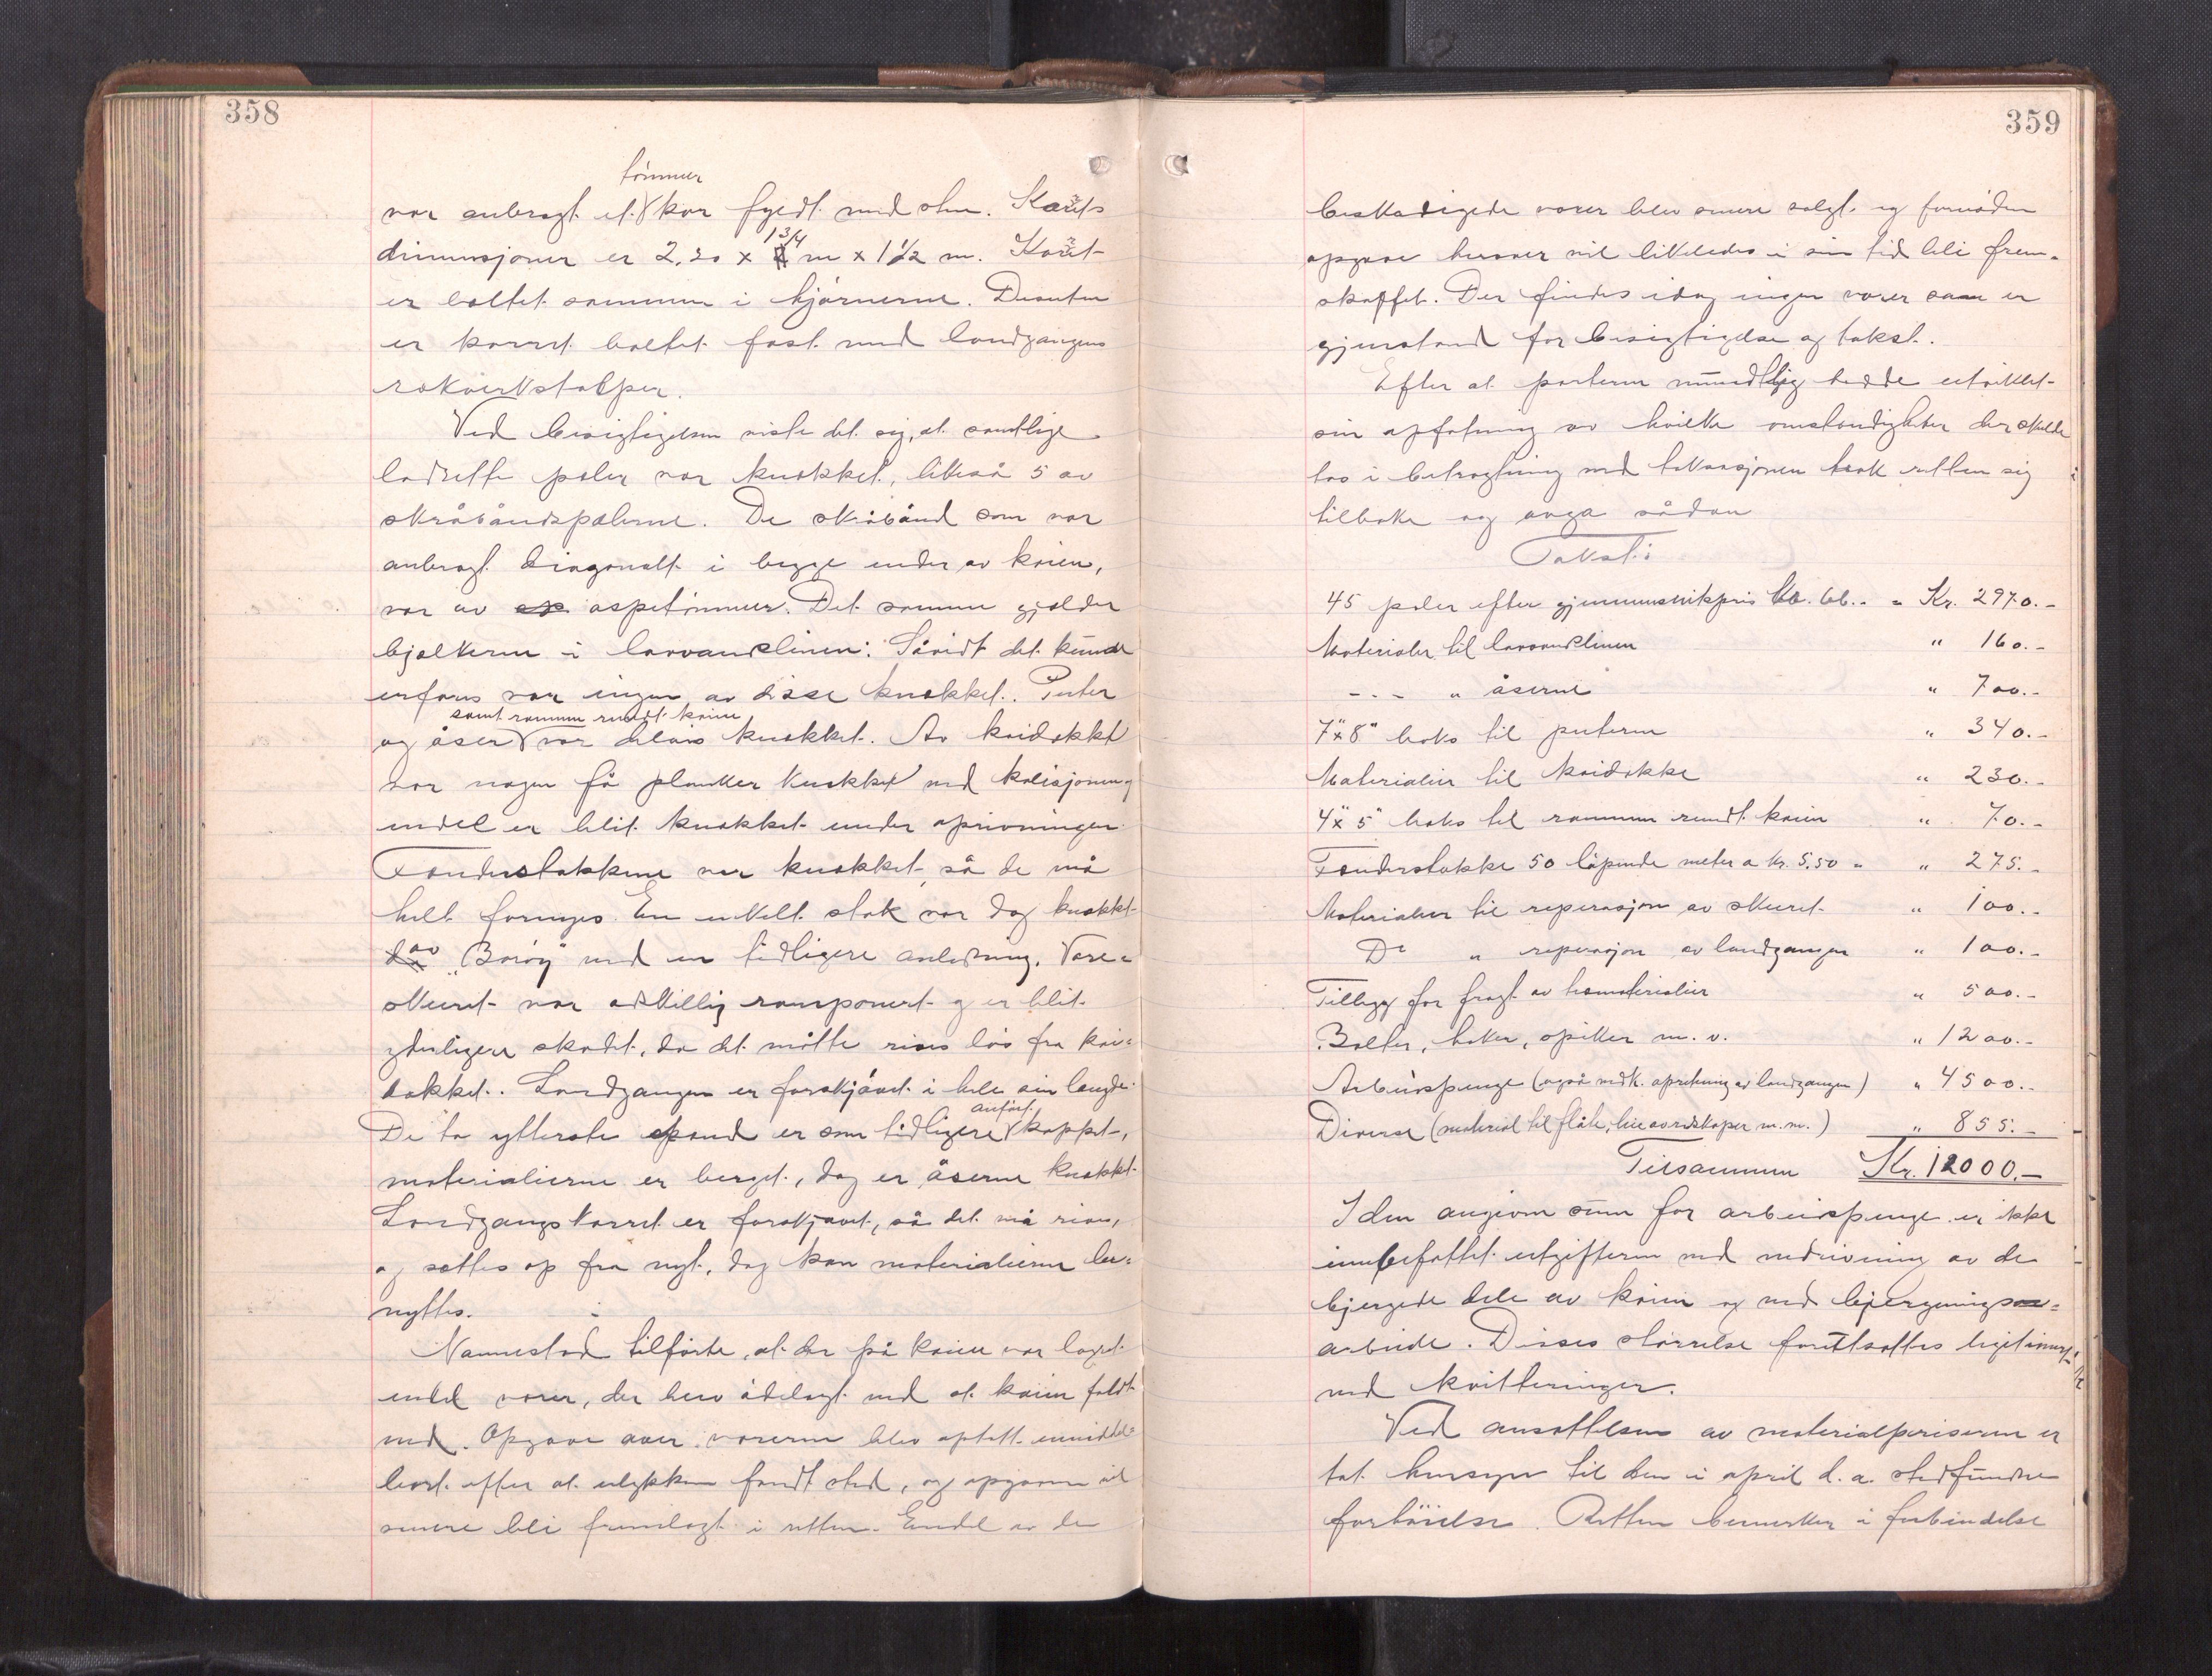 358
tömmer
var anbragt et kar fyldt med sten. Karets
1 3/4
dimensjoner er 2,20 x m x 1 1/2 m. Karet
er boltet sammen i hjørnerne. Desuten
er karret boltet fast med landgangens
rækverkstolper.
Ved besigtigelsen viste det sig, at samtlige
lodrette pæler var knækket, likeså 5 av
skråbåndspælerne. De skråbånd som var
anbragt diagonalt i begge ender av kaien,
var av aspetømmer. Det samme gjælder
bjælkerne i lavvandslinen. Såvidt det kunde
erfares var ingen av disse knækket. Puter
samt rammen rundt kaien
og åser var delvis knækket. Av kaidækket
var nogen få planker knækket ved kolisjonen og
endel er blit knækket under oprivningen.
Fenderstokkene var knækket, så de må
helt fornyes. En enkelt stok var dog knækket
av "Borøy" ved en tidligere anledning. Vare-
skuret var adskillig ramponert og er blit
yderligere skadet, da det måtte rives løs fra kai-
dækket. Landgangen er forskjøvet i hele sin længde.
anført
De to ytterste spand er som tidligere kappet,
materialierne er berget, dog er åserne knækket.
Landgangskarret er forskjøvet, så det må rives,
og sættes op fra nyt, dog kan materialierne be-
nyttes.
Nannestad tilførte, at der på kaien var lagret
endel varer, der blev ødelagt ved at kaien faldt
ned. Opgave over varerne blev optatt umiddel-
bart efter at ulykken fandt sted, og opgaven vil
senere bli fremlagt i retten. Endel av de
359
beskadigede varer blev senere solgt og fornøden
opgave herover vil likeledes i sin tid bli frem-
skaffet. Der findes idag ingen varer som er
gjenstand for besigtigelse og takst.
Efter at parterne mundtlig hadde utviklet
sin opfatning av hvilke omstændigheter der skulde
tas i betragtning ved taksasjonen trak retten sig
tilbake og avga sådan
Takst:
45 pæler efter gjennemsnitspris kr. 66.- = Kr. 2970.-
Materialer til lavvandslinen " 160.-
- . - " åserne " 700.-
7"x8" boks til puterne " 340.-
Materialier til kaidække " 230.-
4"x5" boks til rammen rundt kaien " 70.-
Fenderstokke 50 løpende meter a kr. 5.50 = " 275.-
Materialier til reperasjon av skuret " 100.-
Do " reperasjon av landgangen " 100.-
Tillegg for fragt av materialier " 500.-
Bolter, haker, spiker m. v. " 1200.-
Arbeidspenge (også vedk. opretning av landgangen) " 4500.-
Diverse (material til flåte, leie av redskaper m.m.) " 855.-
Tilsammen Kr. 12000.-
I den angivne sum for arbeidspenge er ikke
innbefattet utgifterne ved nedrivning av de
bjergede dele av kaien og ved bjergnings-
arbeide. Disses størrelse forutsættes legitimert
ved kvitteringer.
Ved ansættelsen av materialpriserne er
tat hensyn til den i april d. a. stedfundne
forhøielse. Retten bemerker i forbindelse